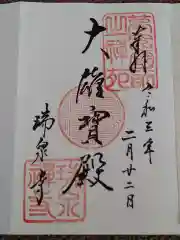 奉拝
令和三年
二月廿二日
大雄寶殿
瑞泉寺